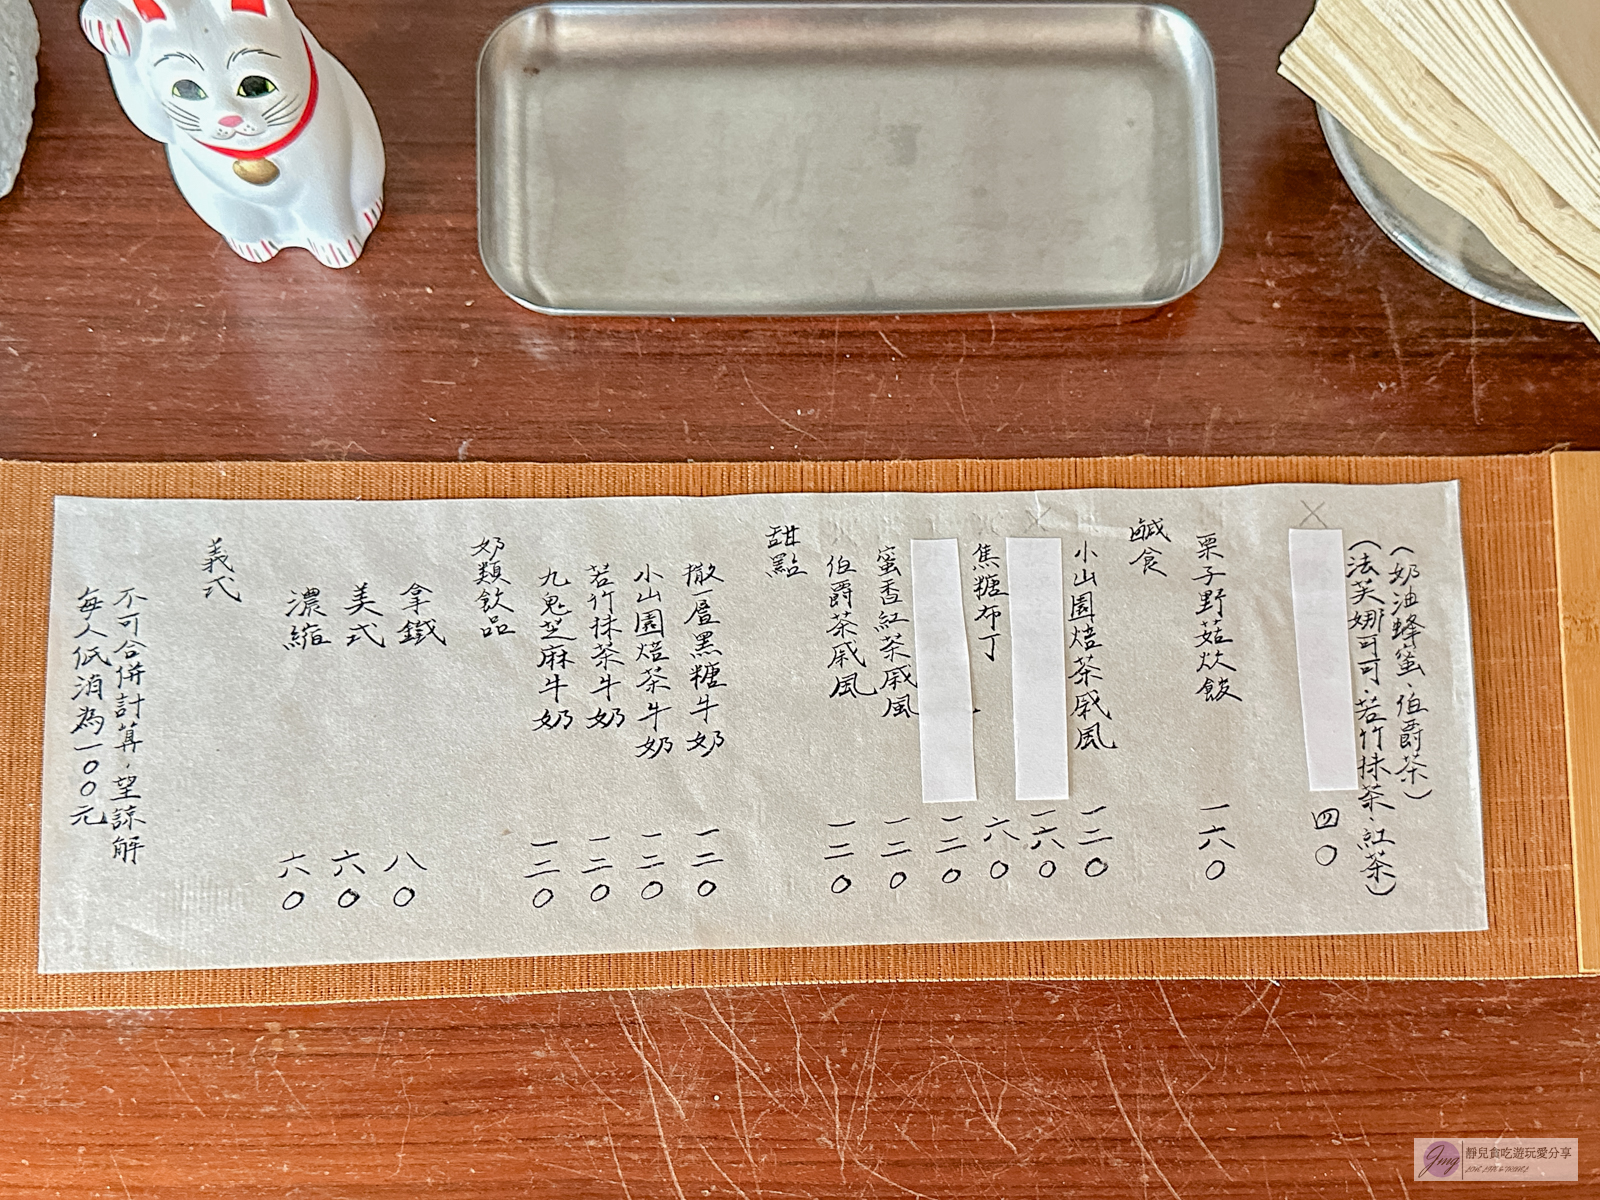 (奶油蜂蜜、伯爵茶)
(法芙娜可可、若竹抹茶、紅茶)
四〇
栗子野菇炊飯 一六〇
鹹食
小山園焙茶戚風 一二〇
一六〇
焦糖布丁 六〇
一二〇
蜜香紅茶戚風 一二〇
伯爵茶戚風 一二〇
甜點
撒一層黑糖牛奶 一二〇
小山園焙茶牛奶 一二〇
若竹抹茶牛奶 一二〇
九鬼芝麻牛奶 一二〇
奶類飲品
拿鐵 八〇
美式 六〇
濃縮 六〇
義式
不可合併計算，望諒解
每人低消為一〇〇元
Jing
靜兒貪吃遊玩愛分享